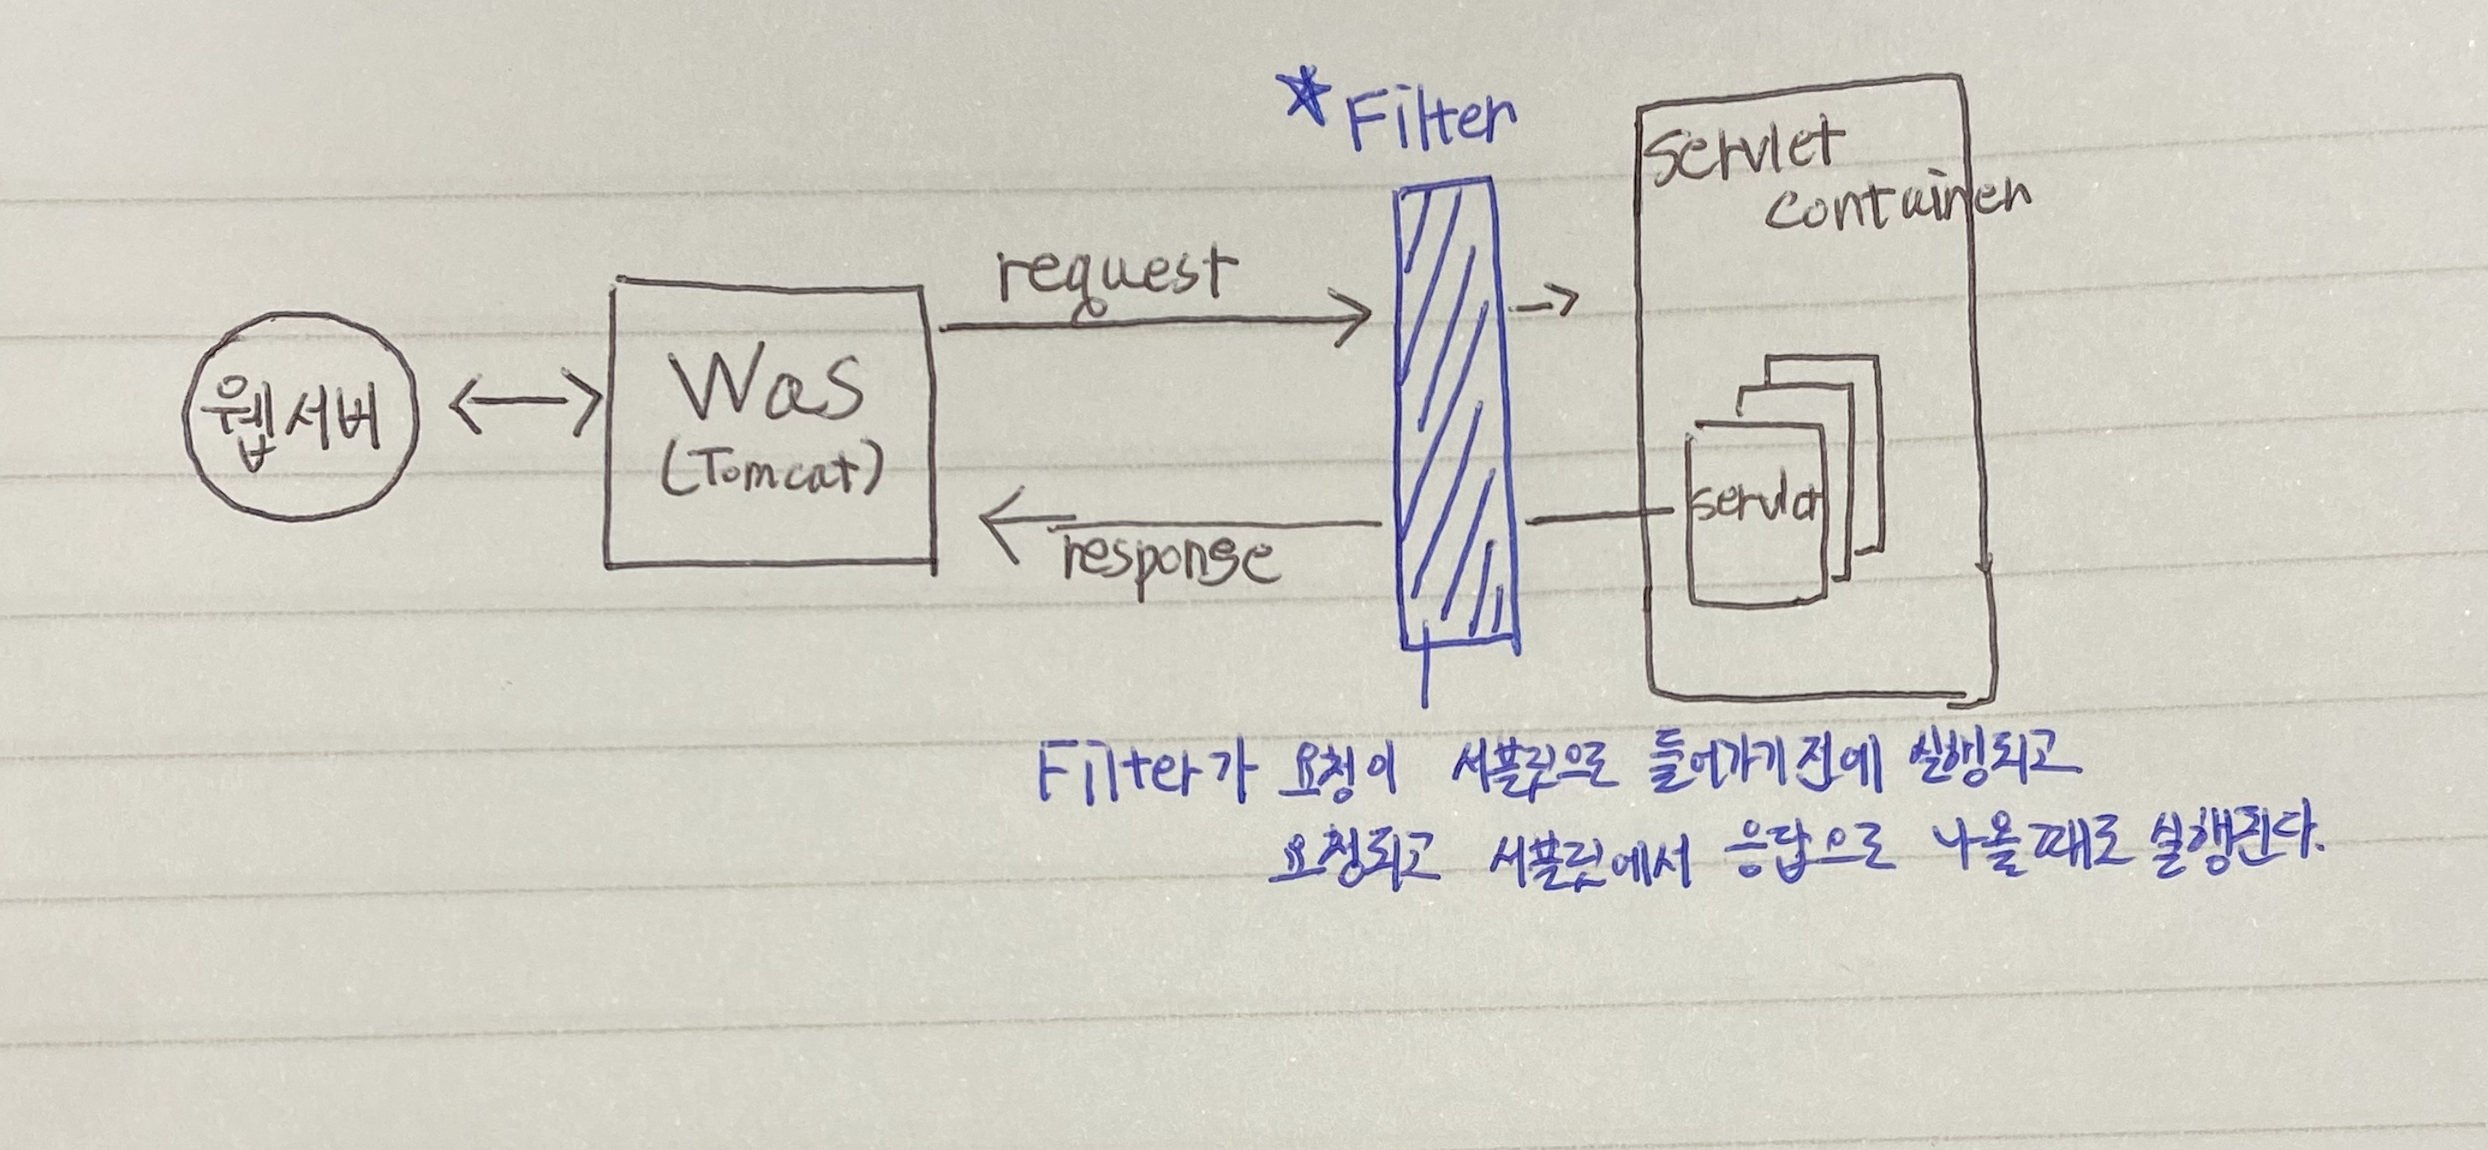 *Filter
Servlet
container
request
웹서버
Was
(Tomcat)
servlet
response
Filter가 요청이 서블릿으로 들어가기전에 실행되고
요청되고 서블릿에서 응답으로 나올때로 실행된다.